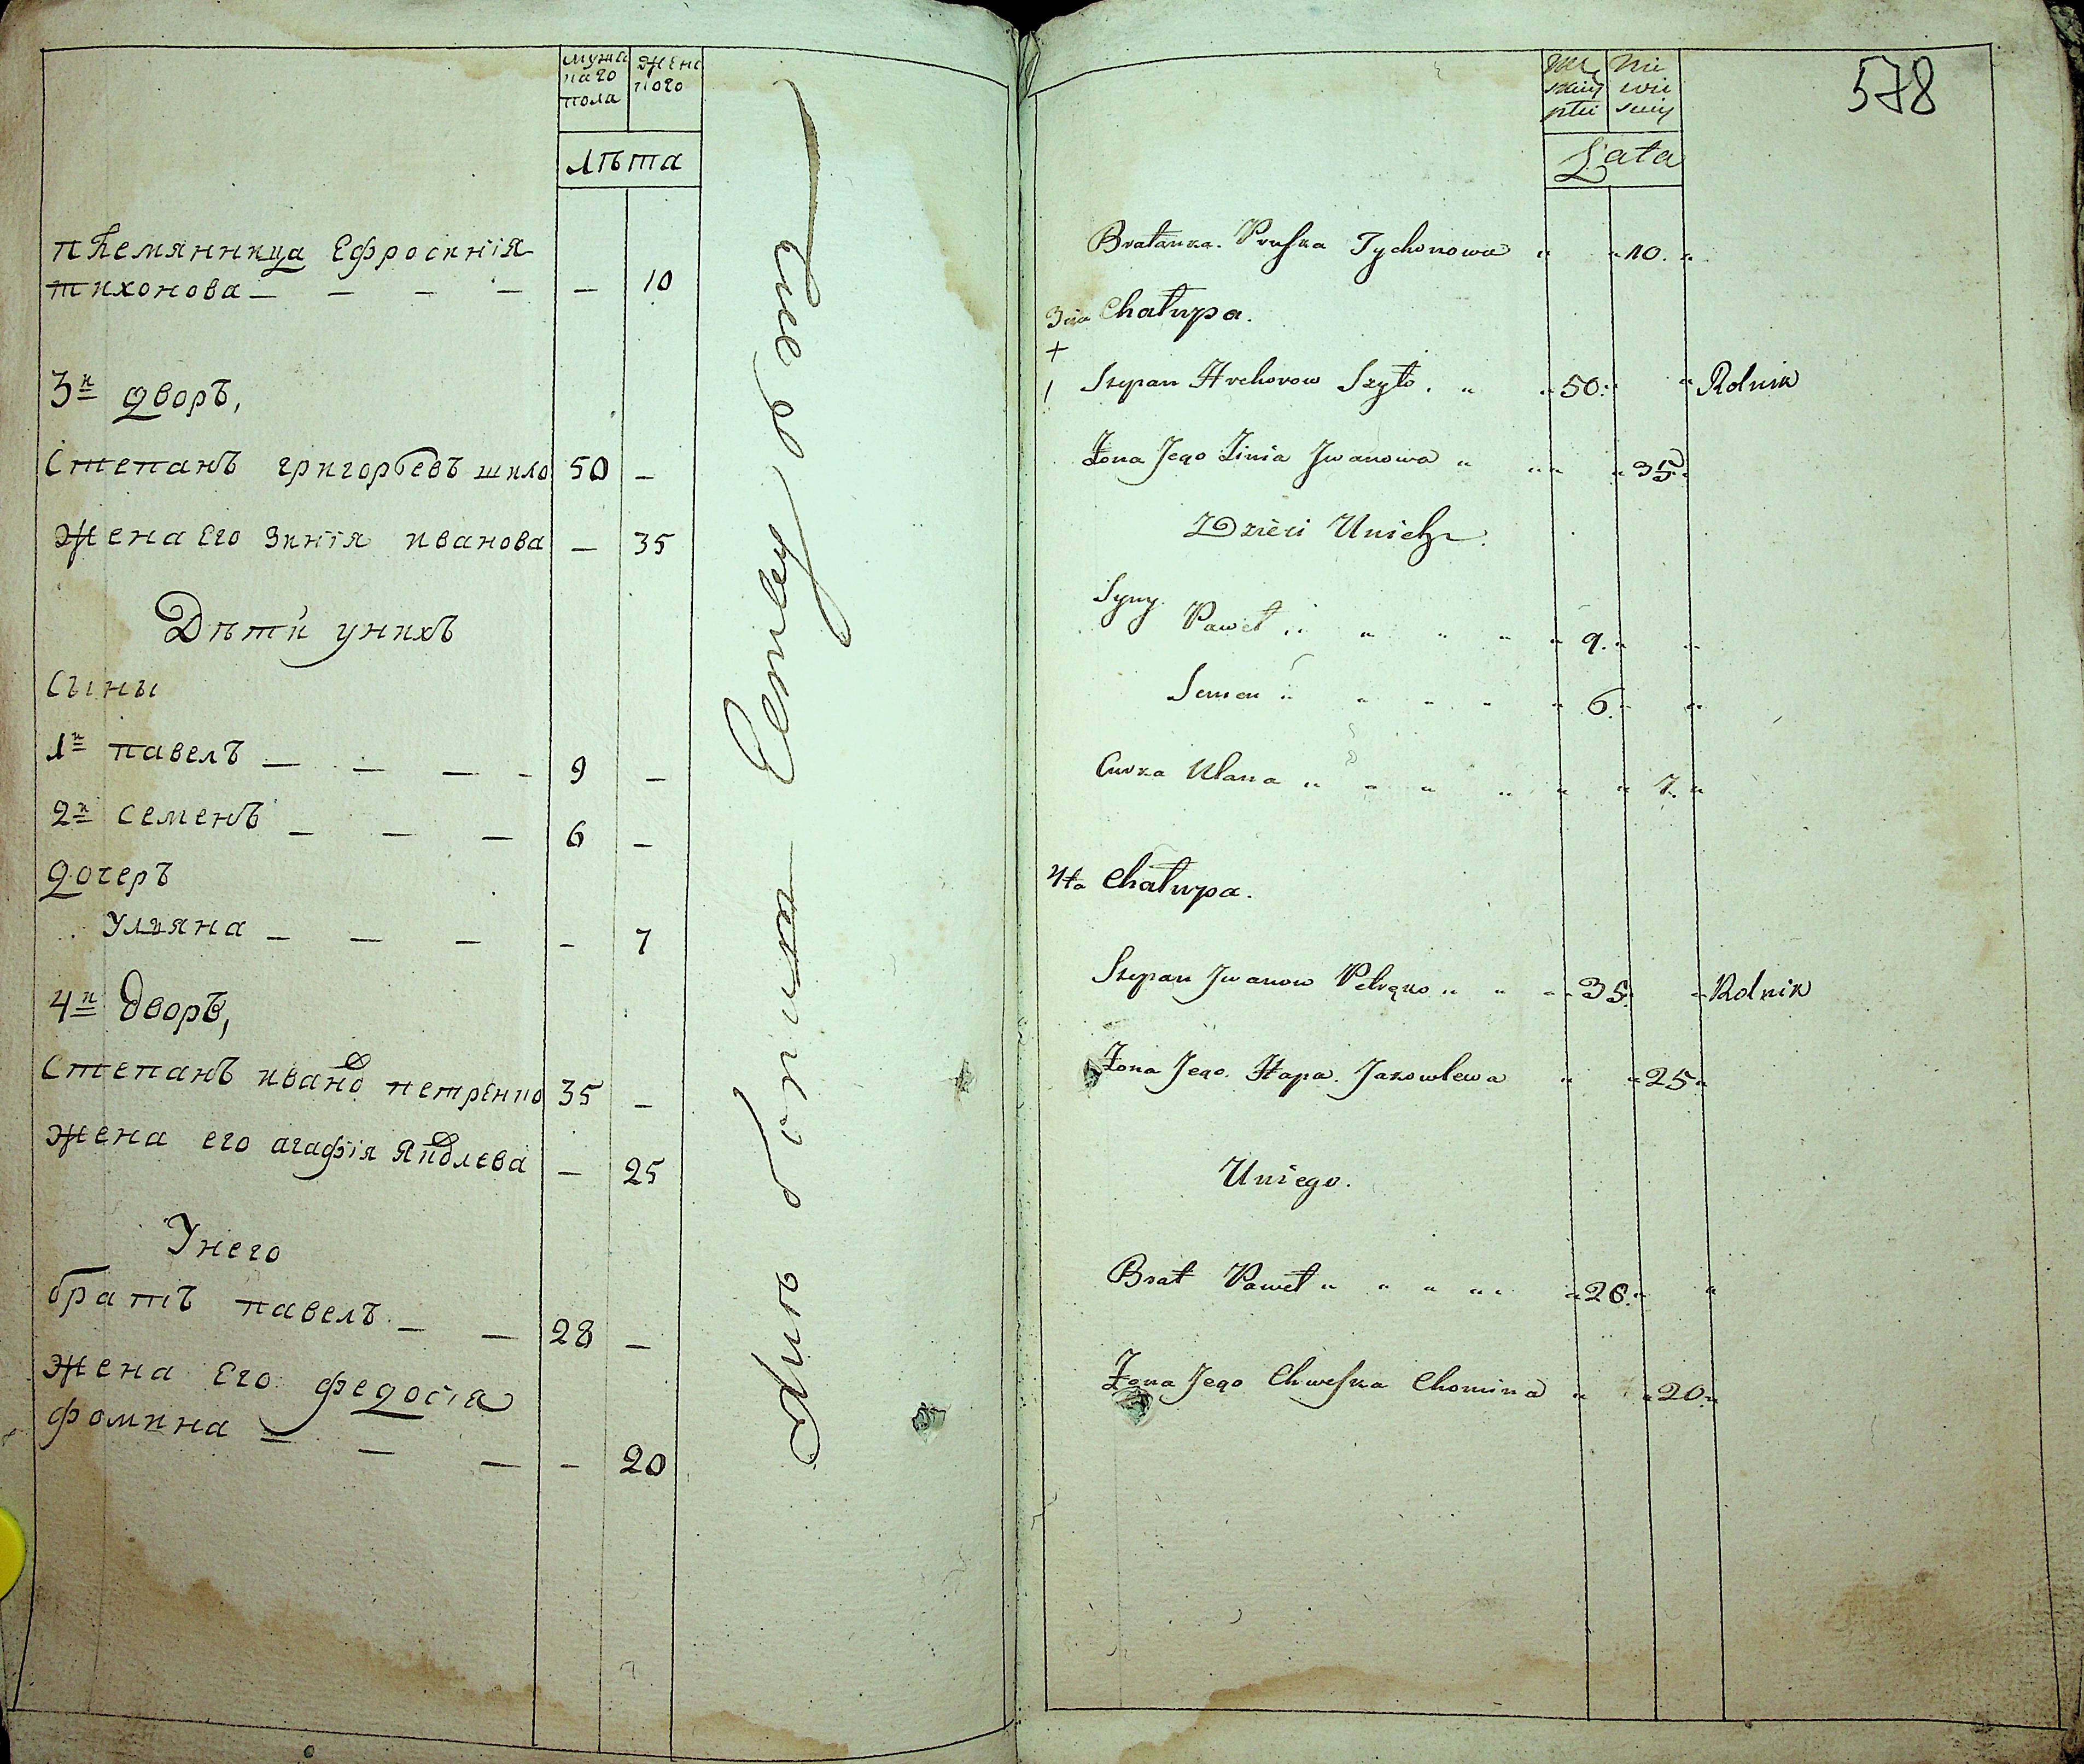 мужс
каго
пола
женс
кого
лѣта
племянница Ефросинія
тихонова — — — — — 10
3й дворъ,
Степанъ григорьевъ шило 50 —
жена Его Зинія иванова — 35
Дѣти унихъ
Сыны
1й павелъ — — — - 9 —
2й семенъ — — — 6 —
дочеръ
Ульяна — — — - 7
4й дворъ,
Степанъ иванов петренко 35 —
жена его агафія Яковлева — 25
Унего
братъ павелъ — — 28 —
жена Его федосія
фомина — — — - 20
578
Nie
wie
sciey
Lata
Bratanka. Pruska Tychonowa " " 10. "
3cia Chałupa.
+
1 Stepan Hrehorow Szyło. " " 50. " " Rolnik
Żona Jego Zinia Jwanowa " " " " 35. "
Dzieci Unich.
Syny.
Paweł " " " " " 9. " "
Semen " " " " " 6. " "
Curka Ulana " " " " " " 7. "
4ta Chałupa.
Stepan Jwanow Petręko " " " " 35. " Rolnik
Żona Jego. Hapa. Jakowlewa " " 25 "
Uniego.
Brat Paweł " " " " " 28. " "
Żona Jego Chweska Chomina " " 20. "